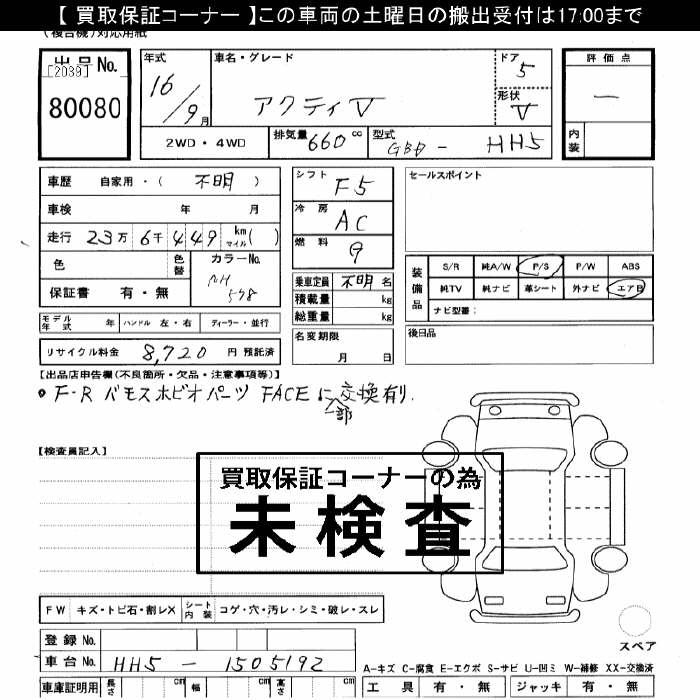 【 買取保証コーナー 】この車両の土曜日の搬出受付は17:00まで
(複合機)対応用紙
出品 No.
[2039]
80080
年式 16/9月
車名・グレード アクティV
ドア 5
形状 V
評価点 —
内装
2WD・4WD
排気量 660 cc
型式 GBD - HH5
車歴 自家用・( 不明 )
車検 年 月
走行 23万 6千 4 4 9 km マイル( )
色
色替
カラーNo. NH 578
保証書 有・無
シフト F5
冷房 AC
燃料 g
乗車定員 不明 名
積載量 kg
総重量 kg
セールスポイント
装備品
S/R 純A/W P/S P/W ABS
純TV 純ナビ 革シート 外ナビ エアB
ナビ型番:
モデル年式 年 ハンドル 左・右 ディーラー・並行
名変期限 月 日
後日品
リサイクル料金 8,720 円 預託済
【出品店申告欄(不良箇所・欠品・注意事項等)】
F-R バモスホビオパーツ FACEに一部交換有り.
【検査員記入】
買取保証コーナーの為
未検査
FW キズ・トビ石・割レX シート内装 コゲ・穴・汚レ・シミ・破レ・スレ
登録 No.
車台 No. HH5 - 1505192
スペア
A-キズ C-腐食 E-エクボ S-サビ U-凹ミ W-補修 XX-交換済
車庫証明用 長さ cm 幅 cm 高さ cm
工具 有・無 ジャッキ 有・無